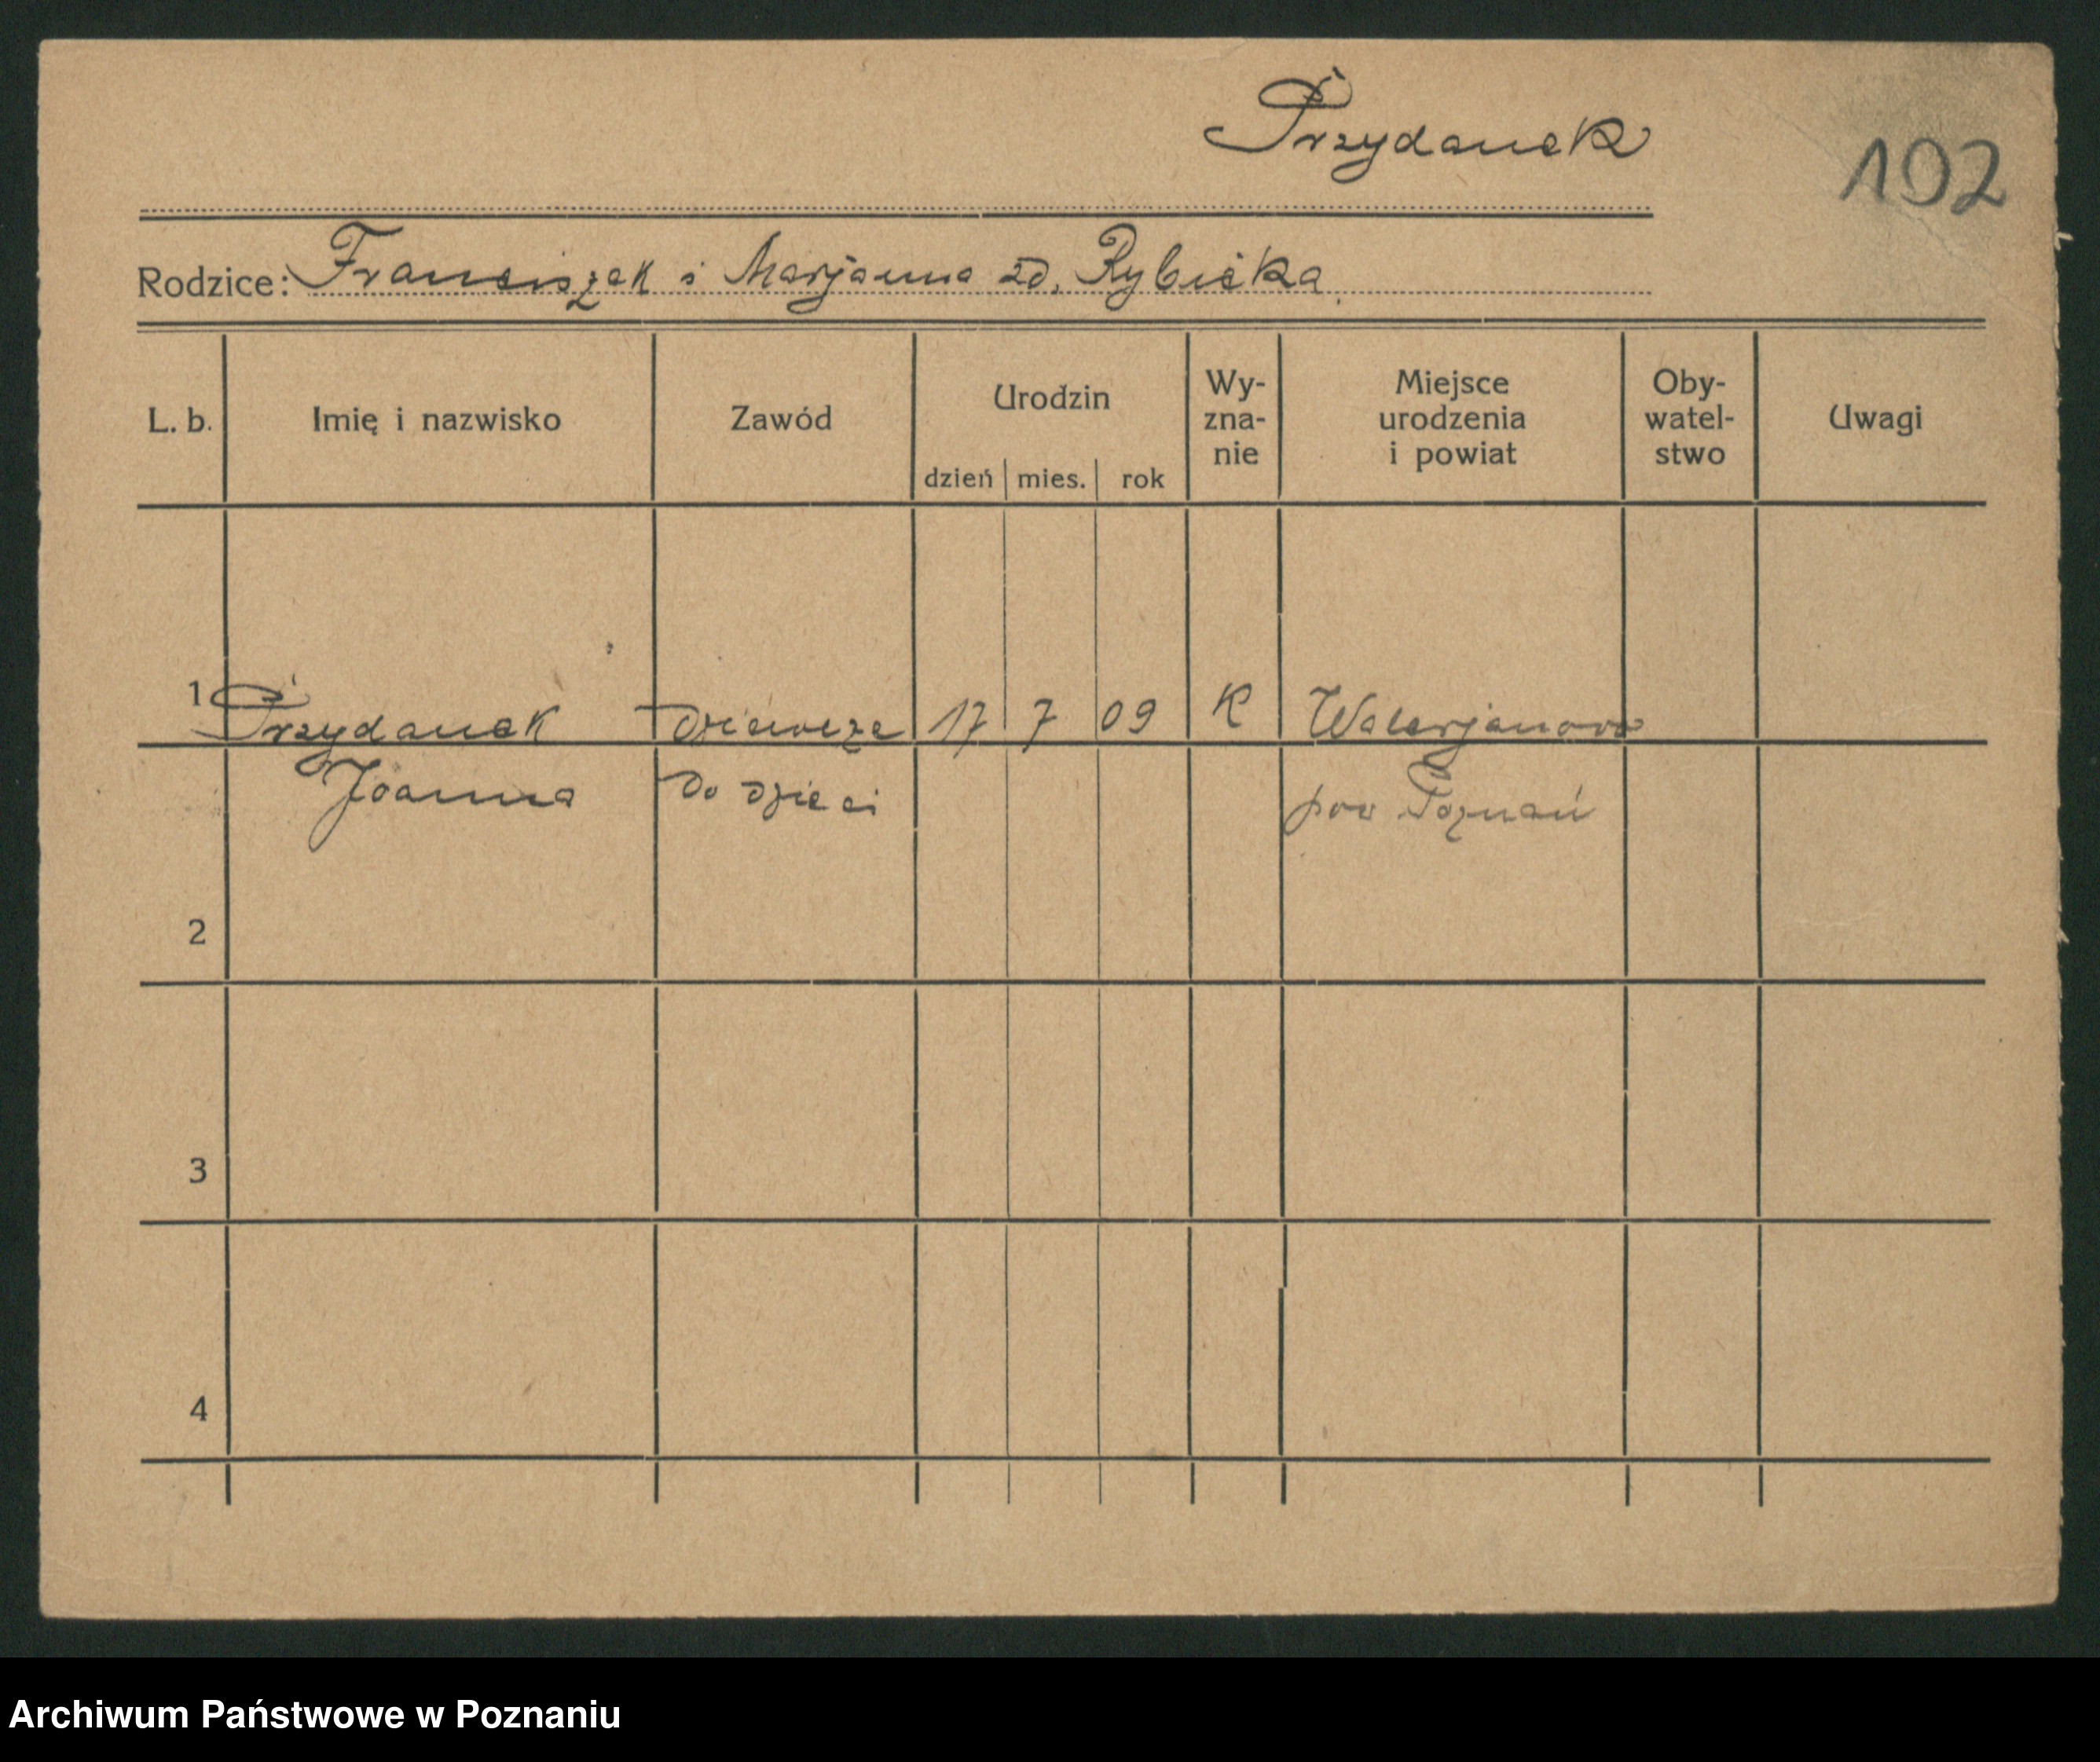 Przydanek
102
Rodzice: Franciszek i Marjanna zd. Rybicka
L. b.
Imię i nazwisko
Zawód
Urodzin
dzień mies. rok
Wy-
zna-
nie
Miejsce
urodzenia
i powiat
Oby-
watel-
stwo
Uwagi
1 Przydanek Dziewczę 17 7 09 K Walerjanowo
Joanna do dzieci pow Poznań
2
3
4
Archiwum Państwowe w Poznaniu